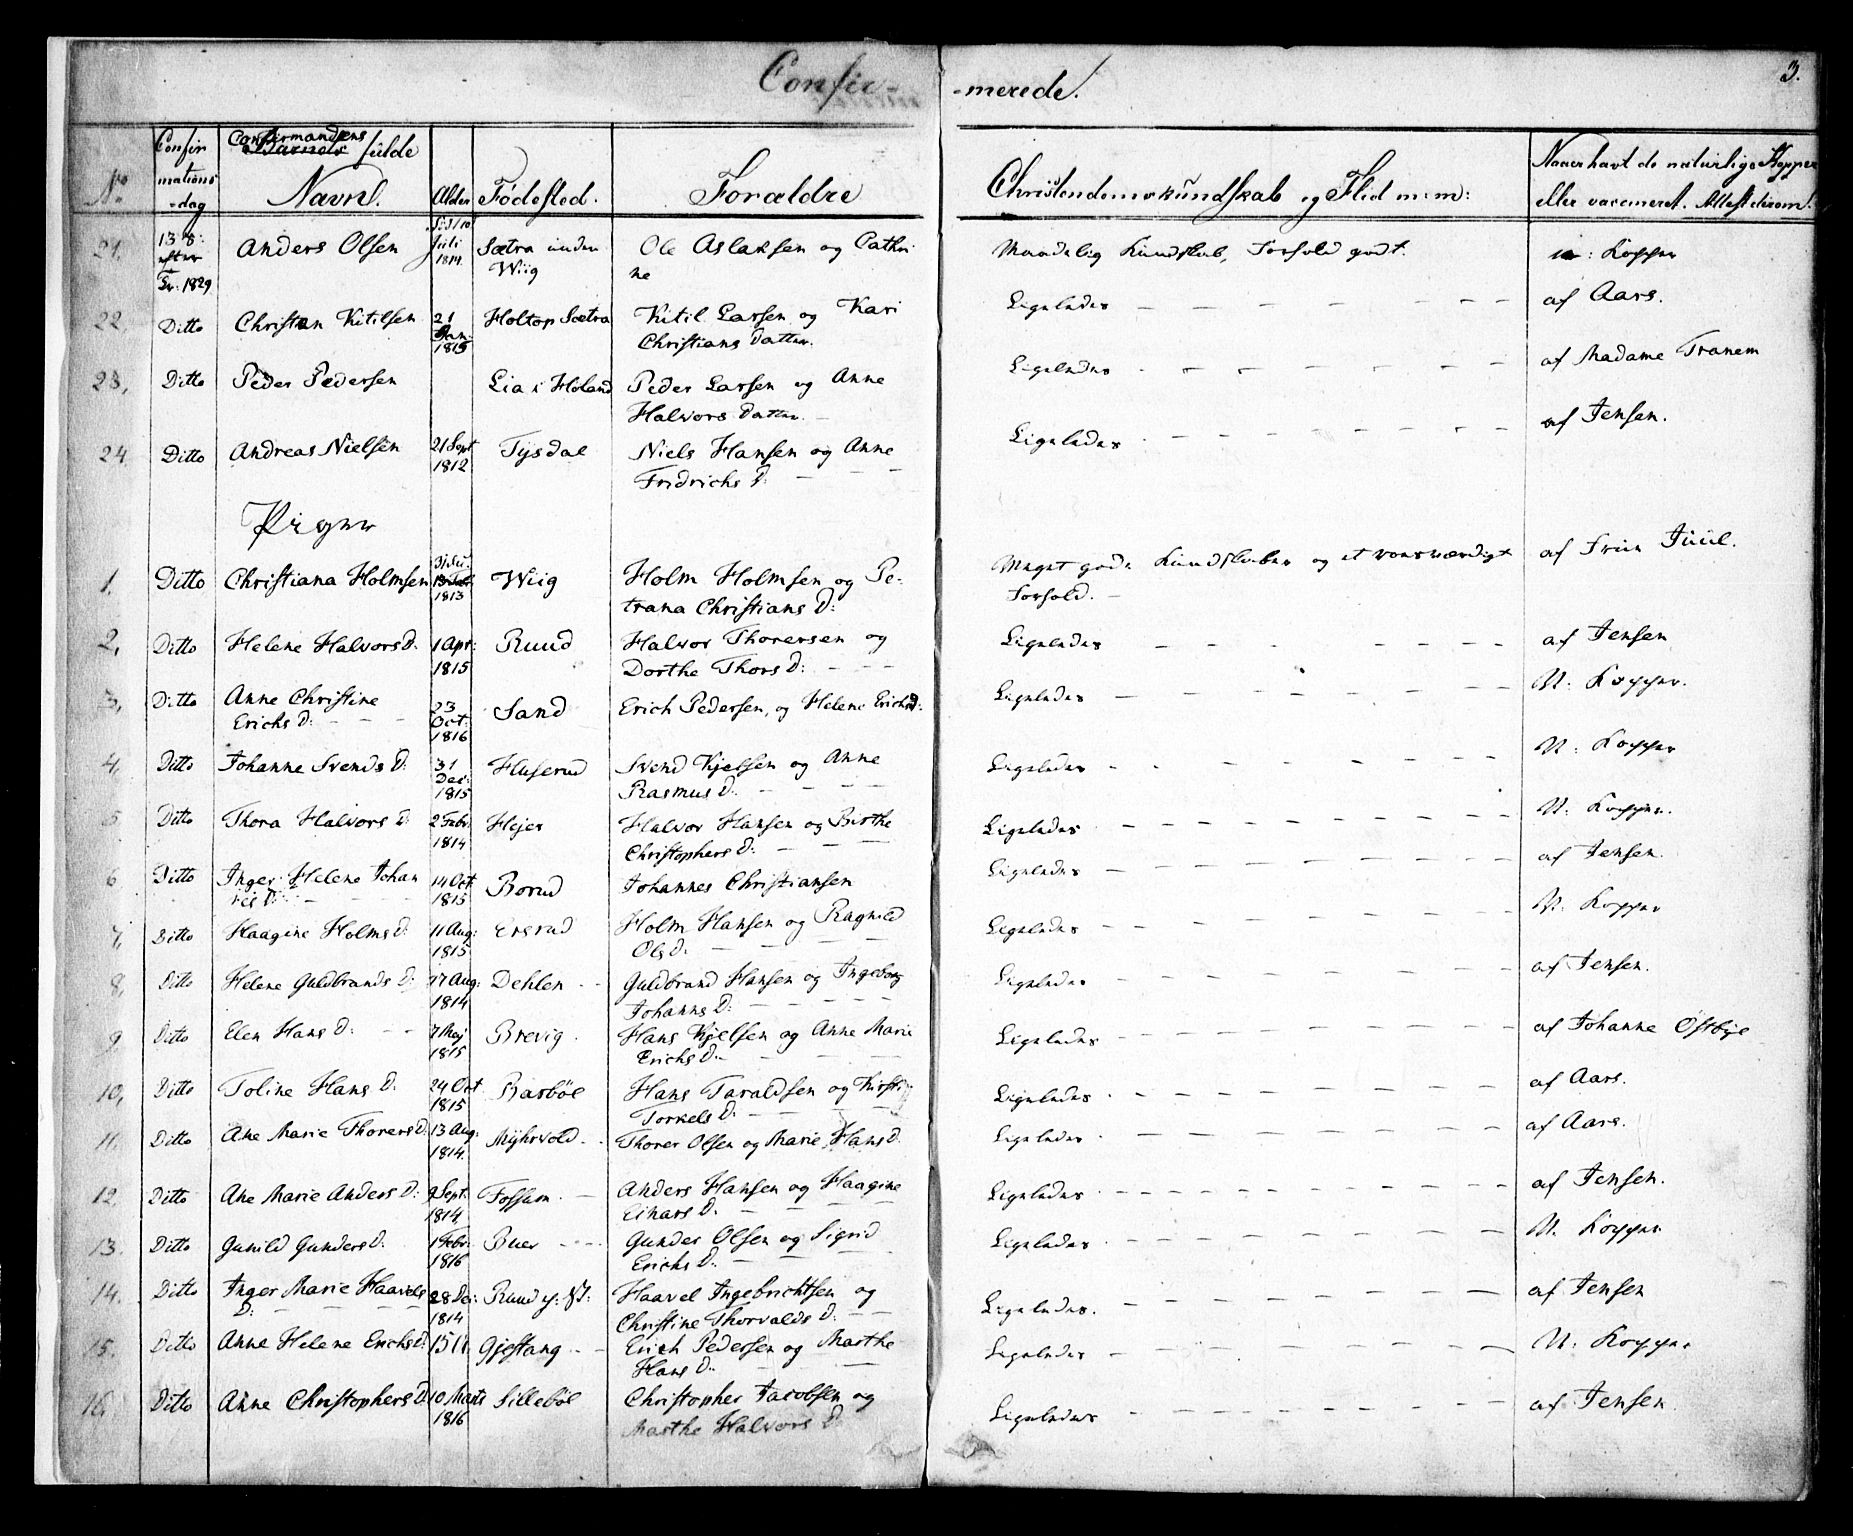 Confir- -merede. 3.
No. Confirmations-dag Confirmandens Barnets fulde Navn. Alder Fødested. Forældre Christendomskundskab og Flid m: m: Naaer havt de naturlige Kopper eller vaccineret. Attest derom.
21. 13 S: efter Tr: 1829 Anders Olsen Juli 1814. Sætra under Wiig Ole Aslaksen og Cathri
ne Maadelig Kundskab, Forhold godt. Kopper
22 Ditto Christen Kitilsen 21 Jan. 1815 Holtop Sætra Kitil Larsen og Kari
Christians Datter. Ligeledes — — — — af Aars.
23, Ditto Peder Pedersen Lia i Høland Peder Larsen og Anne
Halvors Datter. — Ligeledes - - - - af Madame Tranem
24. Ditto Andreas Nielsen 21 Sept 1812 Tysdal Niels Hansen og Anne
Fridrichs D: — — — Ligeledes - - - - af Jensen.
Piger
1. Ditto Christiana Holmsen 1813 Wiig Holm Holmsen og Pe-
trana Christians D: Meget gode Kundskaber og et roesværdigt
Forhold. — af Frue Juul.
2, Ditto Helene Halvors D. 1 Apr: 1815 Ruud Halvor Thorersen og
Dorthe Thors D: - - - Ligeledes - - - - af Jensen
3, Ditto Anne Christine
Erichs D: - - - 23 Oct: 1816 Sand Erich Pedersen, og Helene Erichs D: Ligeledes — - - - N: Kopper.
4, Ditto Johanne Svends D: 31 Dec: 1815 Huserud Svend Kjelsen og Anne
Rasmus D: - - - - Ligeledes - - - - N: Kopper
5 Ditto Thora Halvors D: 2 Febr: 1814 Hejer Halvor Hansen og Birthe
Christophers D: - - - Ligeledes - - - - N: Kopper.
6 Ditto Inger Helene Johan
nes D: - - - 14 Oct 1815 Borud Johannes Christiansen Ligeledes - - - - af Jensen.
7, Ditto Haagine Holms D: 11 Aug: 1815 Ersrud Holm Hansen og Ragnild
Ols D: - - - - Ligeledes - - - - N: Kopper
8, Ditto Helene Guldbrands D: 17 Aug: 1814 Dehlen - - Guldbrand Hansen og Ingeborg
Johanns D: - - - - Ligeledes - - - - af Jensen.
9, Ditto Elen Hans D: - - 7 Maj 1815 Brevig. Hans Kjelsen og Anne Marie
Erichs D: - - - Ligeledes - - - - af Johanne Østbye
10, Ditto Toline Hans D: 24 Oct 1815 Barbøl Hans Taraldsen og Kirsti
Torkels D: - - - Ligeledes - - - - af Aars.
11. Ditto Ane Marie Thorers D: 13 Aug: 1814. Myhrvold. - Thorer Olsen og Marie Hans D. Ligeledes - - - - af Aars.
12. Ditto Ane Marie Anders D: 9 Sept. 1814. Fossum. - Anders Hansen og Haagine
Einars D. - - - Ligeledes - - - - af Jensen.
13. Ditto Gunild Gunders D: 1 Febr: 1816 Buer - - - Gunder Olsen og Sigrid
Erichs D: - - - Ligeledes - - - - N. Kopper
14. Ditto Inger Marie Haavels
D: - - - 28 Dec: 1814 Ruud Haavel Ingebrichtsen og
Christine Thorvalds D: - - Ligeledes. - - - - af Jensen
15. Ditto Anne Helene Erichs D: Gjestang - - Erich Pedersen og Marthe
Hans D: - - Ligeledes - - - - N: Kopper
16, Ditto Anne Christophers D: 10 Marts 1816 Sillebøl Christopher Jacobsen og
Marthe Halvors D Ligeledes - - - - af Jensen.